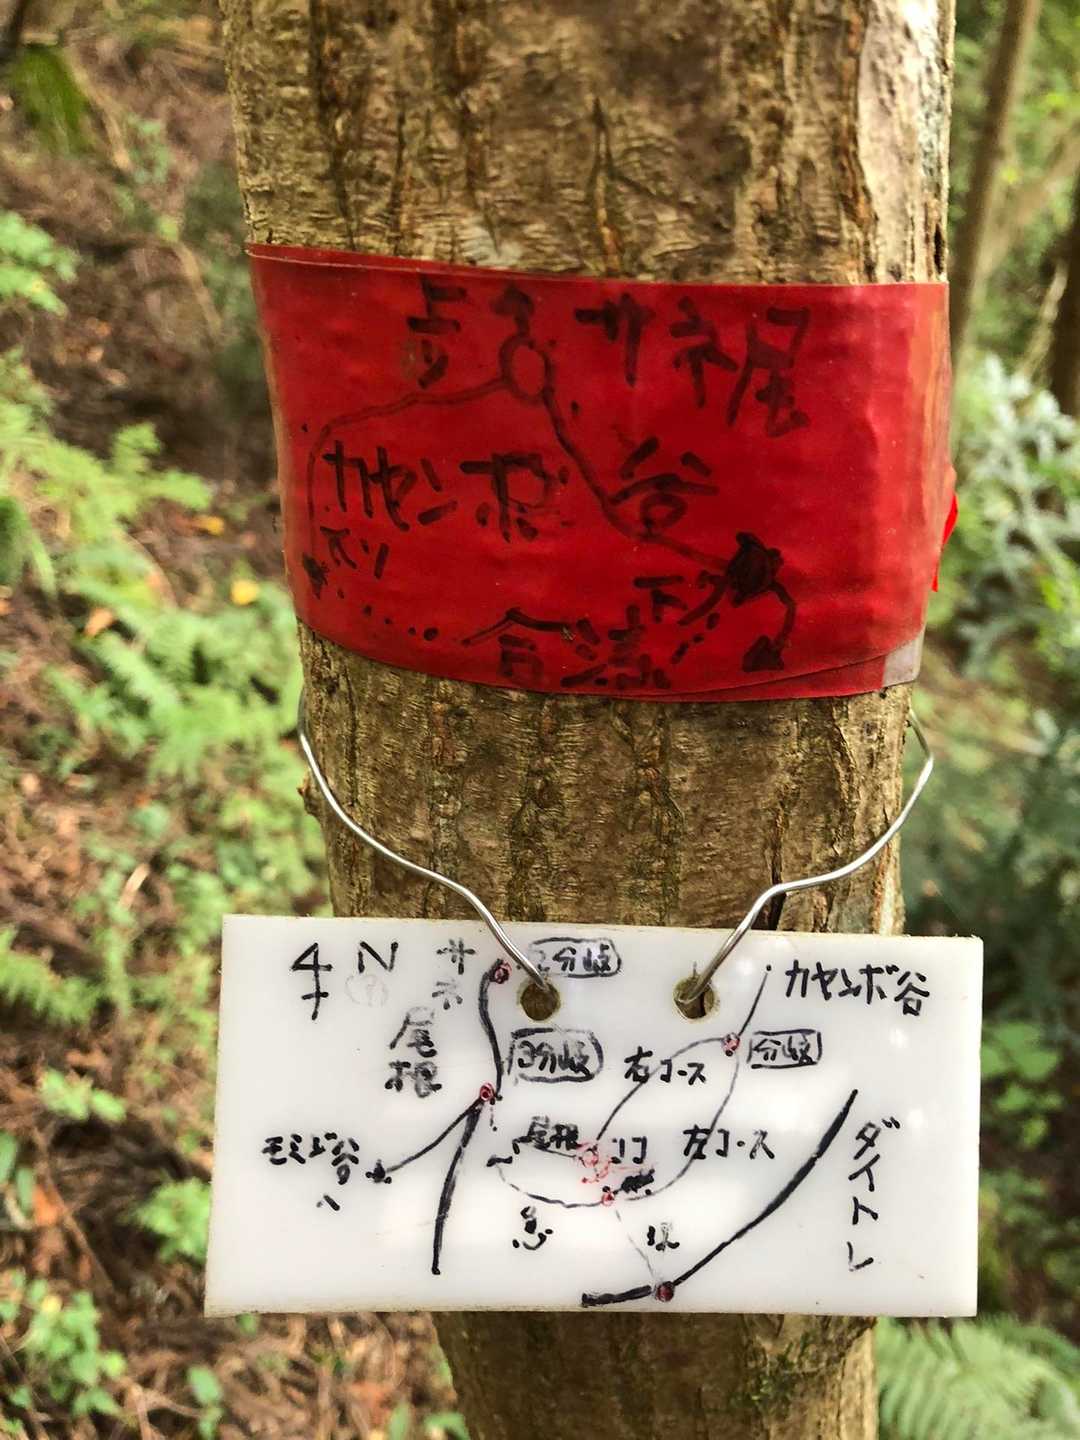 サネ尾
カヤンボ 谷
下ル
合流
4 N サネ 2分岐 カヤンボ谷
尾根 分岐 分岐
右コース
モミジ谷へ 尾根 ココ 左コース
急
ダイトレ